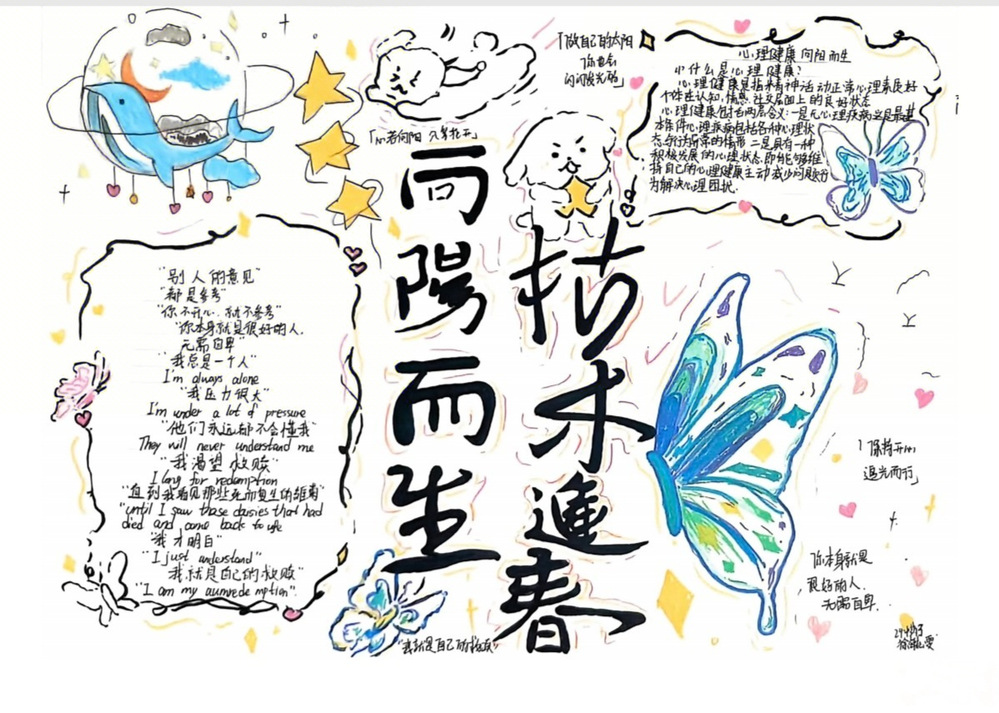 「做自己的太阳
你也会
闪闪发光的」
心理健康 向阳而生
什么是心理健康?
心理健康是指精神活动正常心理素质好
个体在认知、情感、社交层面上的良好状态
心理健康包括两层含义:一是无心理疾病这是最基
本条件心理疾病包括各种心理状
态与行为异常的情形 二是具有一种
积极发展的心理状态,即能够维
持自己的心理健康主动减少问题行
为解决心理困扰.
「心若向阳 久季花开」
向陽而生
枯木逢春
"别人的意见"
"都是参考"
"你不开心.就不参考"
"你本身就是很好的人.
无需自卑"
"我总是一个人"
I'm always alone
"我压力很大"
I'm under a lot of pressure
"他们永远都不会懂我"
They will never understand me
"我渴望救赎"
I long for redemption
"直到我看见那些死而复生的雏菊"
"until I saw those daisies that had
died and came back to life
"我才明白"
"I just understand"
我就是自己的救赎"
"I am my aumrede mption".
「保持开心
追光而行」
你本身就是
很好的人.
无需自卑.
"我就是自己的救赎"